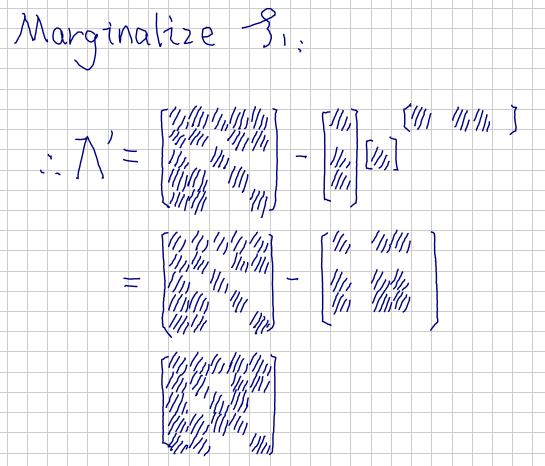 Marginalize ξ₁:
∴ Λ' = [ ] - [ ] [ ] [ ]
= [ ] - [ ]
[ ]